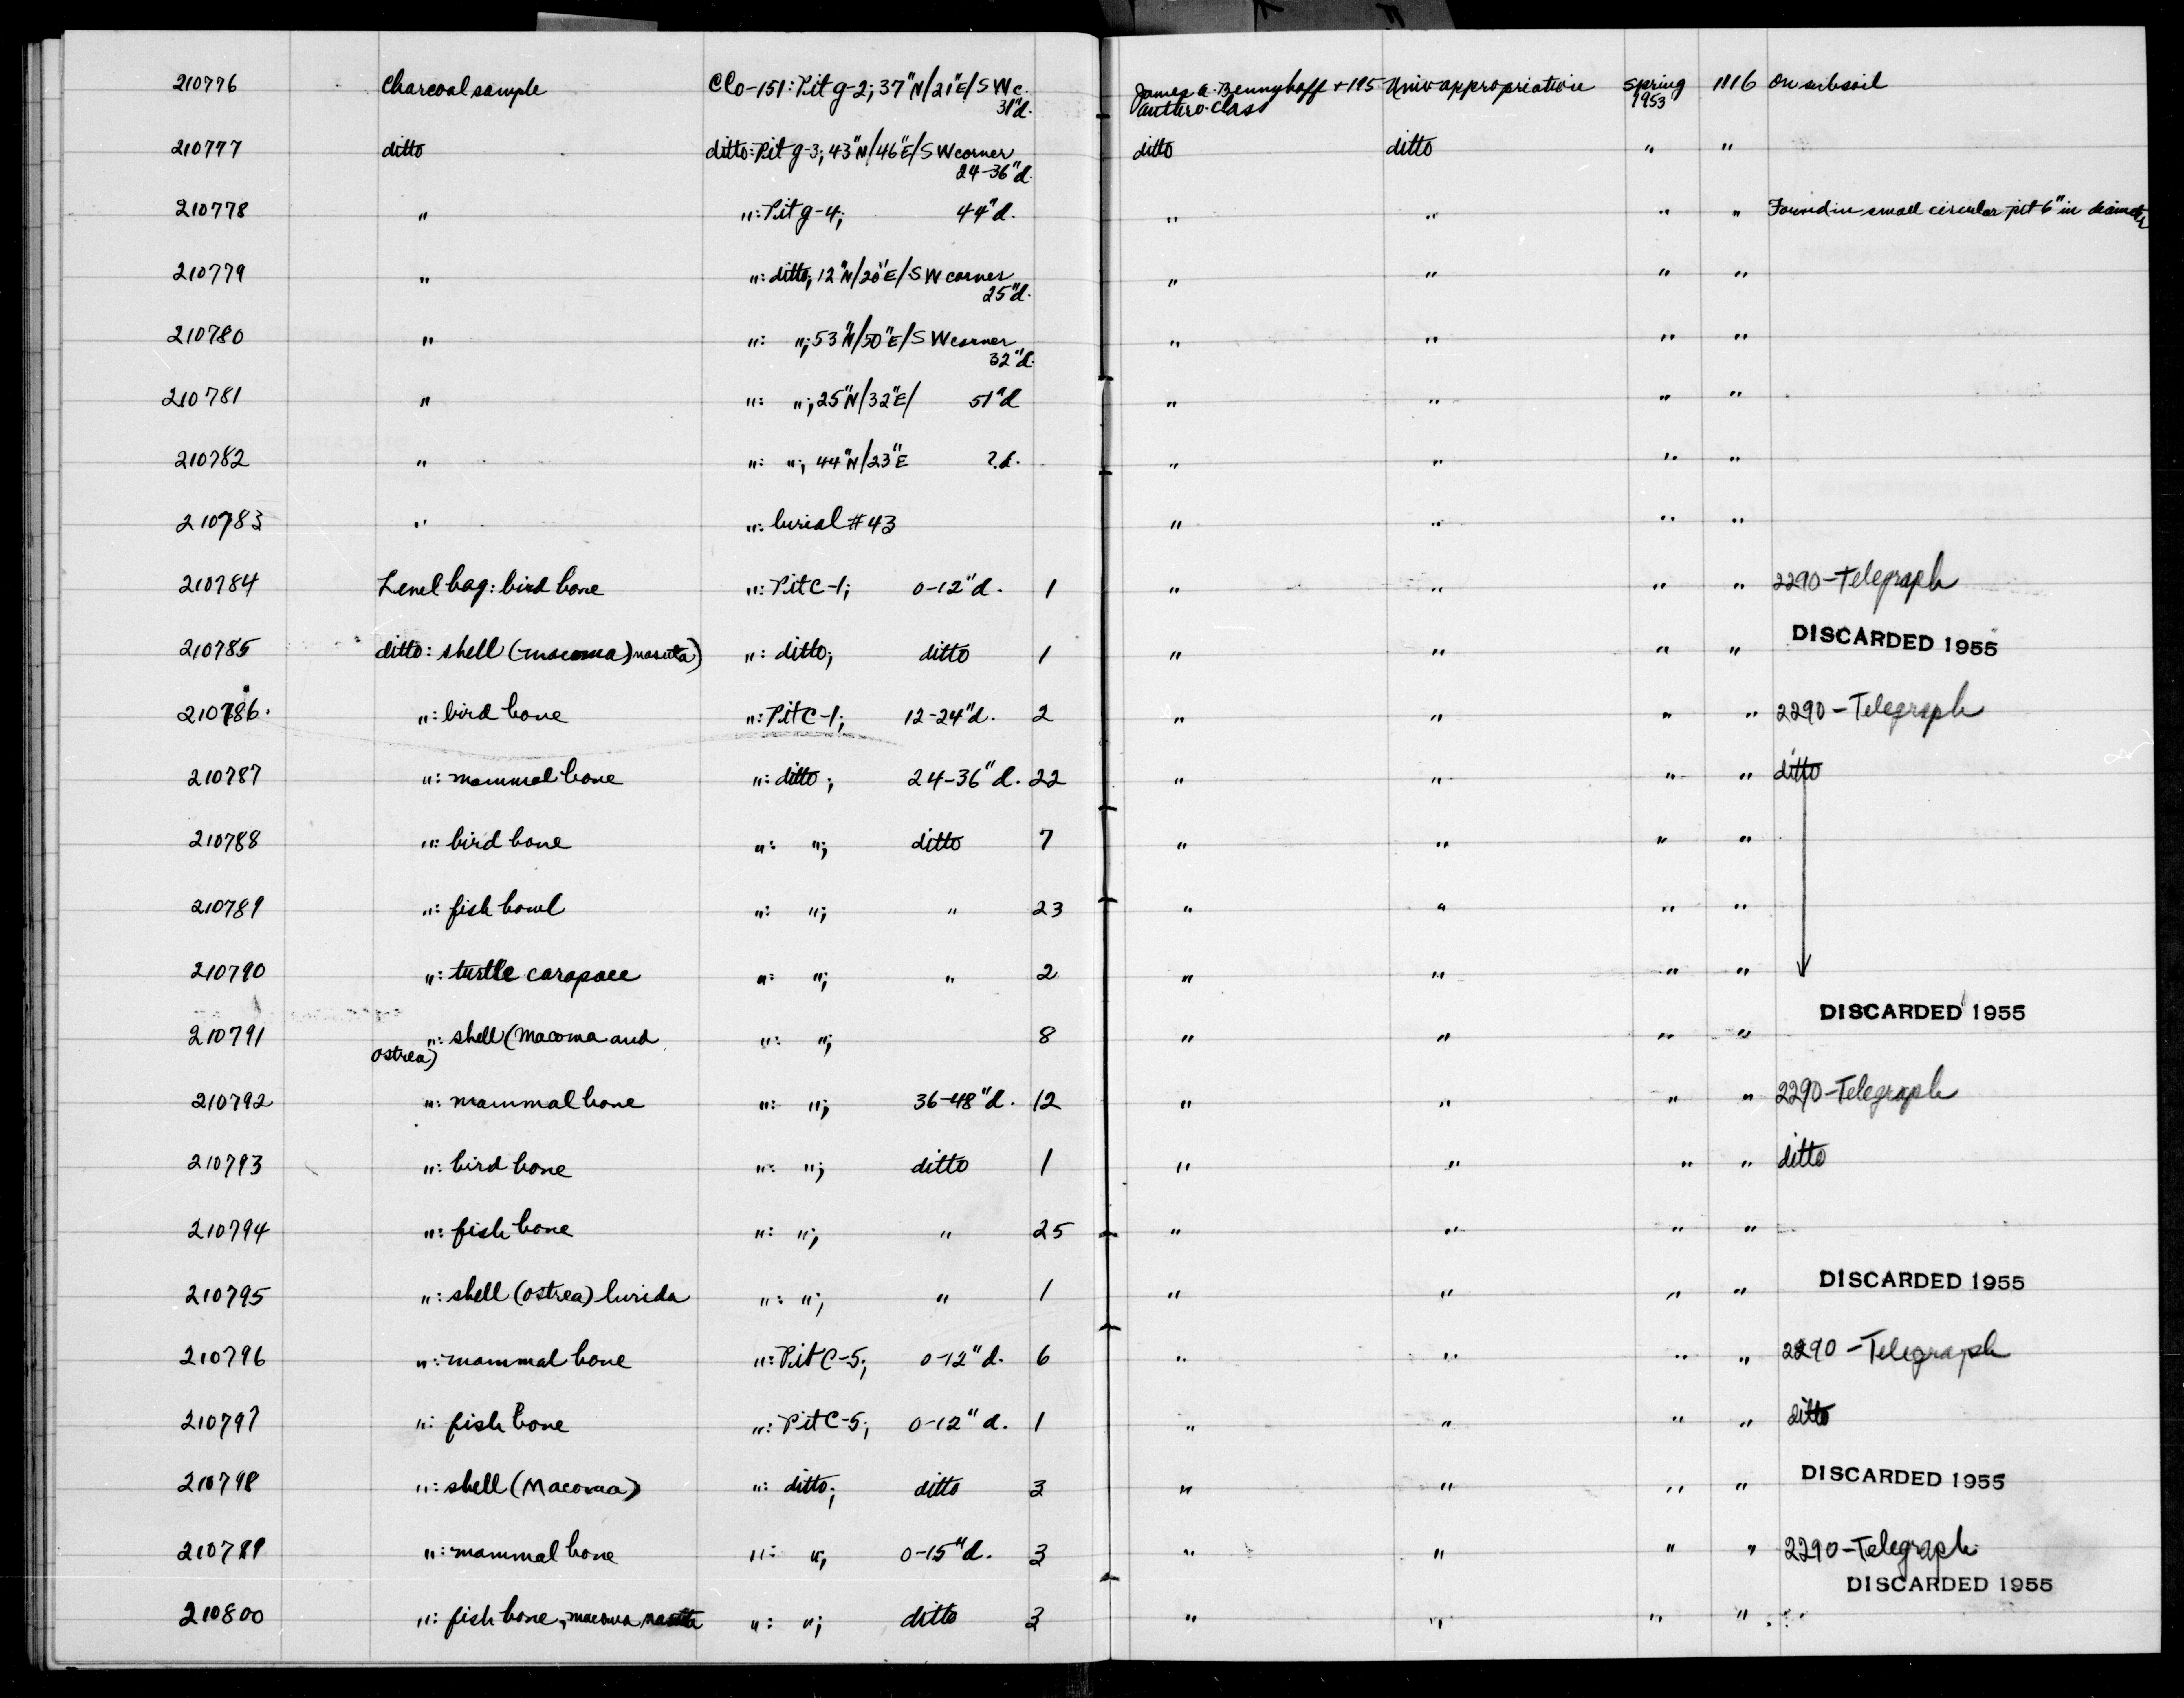 210776 Charcoal sample CCo-151: Pit g-2; 37"N/21"E/S W c. James A. Bennyhoff + 195 Univ appropriation Spring 1116 On subsoil
31"d. anthro. class 1953
210777 ditto ditto: Pit g-3; 43"N/46"E/S W corner ditto ditto " "
24-36"d.
210778 " ": Pit g-4; 44"d. " " " " Found in small circular pit 6" in diameter
210779 " ": ditto; 12"N/20"E/S W corner " " " "
25"d.
210780 " ": "; 53"N/50"E/S W corner " " " "
32"d.
210781 " ": "; 25"N/32"E/ 51"d " " " "
210782 " ": "; 44"N/23"E ?d. " " " "
210783 " ": burial #43 " " " "
210784 Level bag: bird bone ": Pit C-1; 0-12"d. 1 " " " " 2290-Telegraph
210785 ditto: shell (macoma) nasuta) ": ditto; ditto 1 " " " " DISCARDED 1955
210786. ": bird bone ": Pit C-1; 12-24"d. 2 " " " " 2290-Telegraph
210787 ": mammal bone ": ditto; 24-36"d. 22 " " " " ditto
210788 ": bird bone ": "; ditto 7 " " " "
210789 ": fish bowl ": "; " 23 " " " "
210790 ": turtle carapace ": "; " 2 " " " "
210791 ": shell (Macoma and ": "; 8 " " " " DISCARDED 1955
ostrea)
210792 ": mammal bone ": "; 36-48"d. 12 " " " " 2290-Telegraph
210793 ": bird bone ": "; ditto 1 " " " " ditto
210794 ": fish bone ": "; " 25 " " " "
210795 ": shell (ostrea) lurida ": "; " 1 " " " " DISCARDED 1955
210796 ": mammal bone ": Pit C-5; 0-12"d. 6 " " " " 2290-Telegraph
210797 ": fish bone ": Pit C-5; 0-12"d. 1 " " " " ditto
210798 ": shell (Macoma) ": ditto; ditto 3 " " " " DISCARDED 1955
210789 ": mammal bone ": "; 0-15"d. 3 " " " " 2290-Telegraph
DISCARDED 1955
210800 ": fish bone, macoma nasuta ": "; ditto 3 " " " "